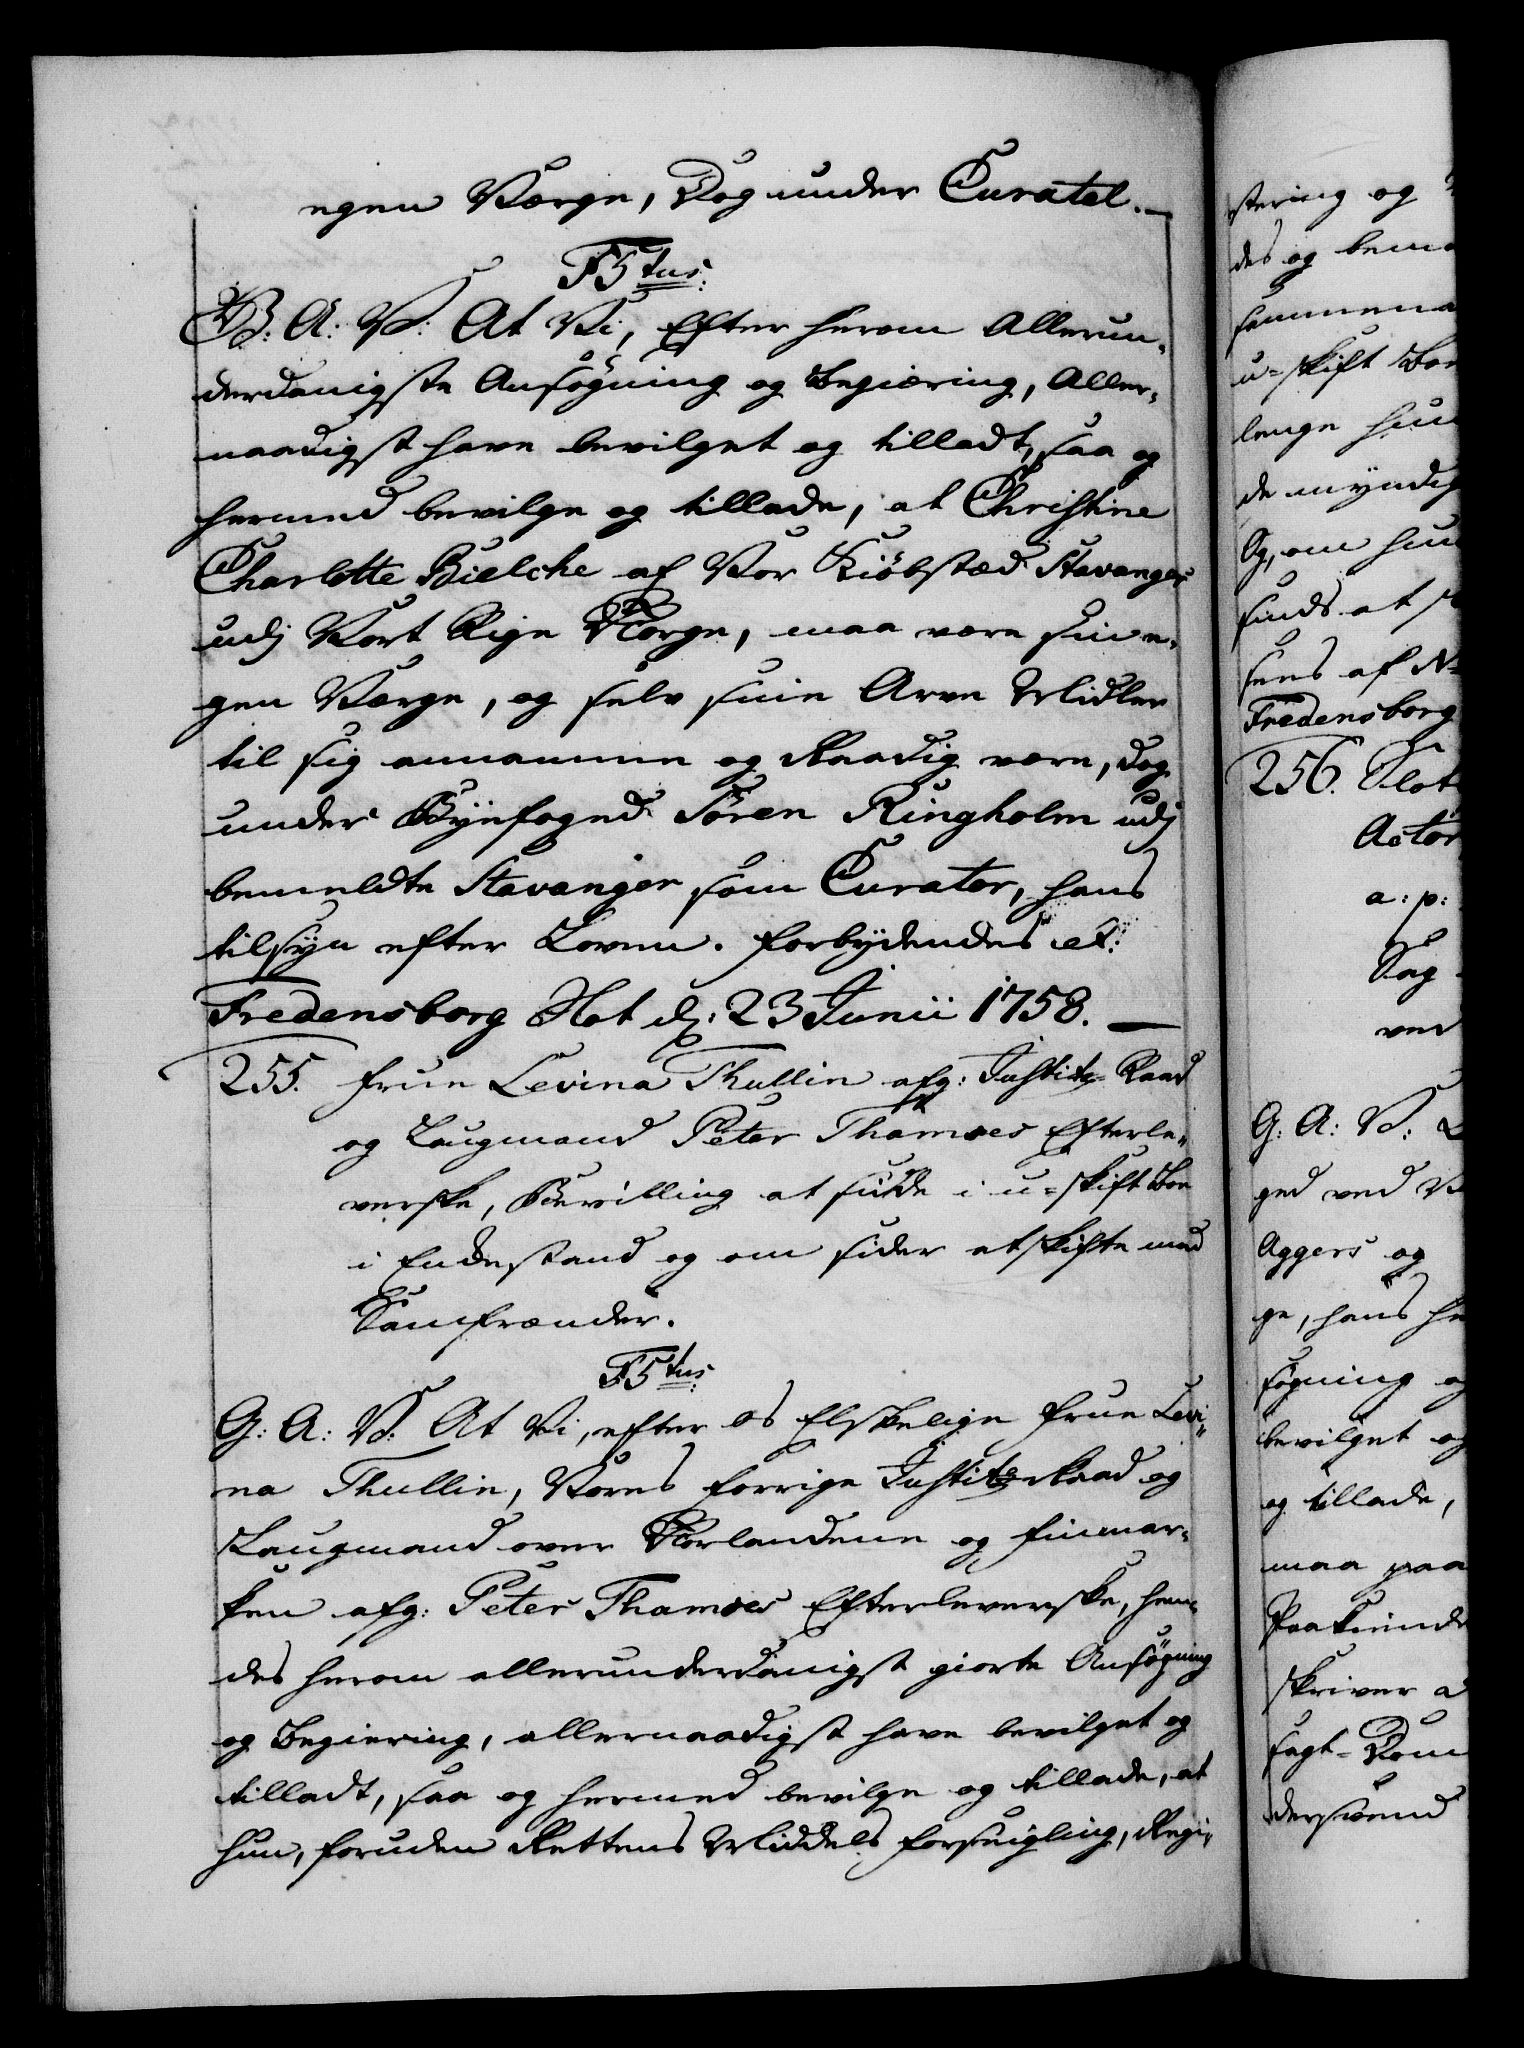 egen Værge, Dog under Curatel.—
F5tus:
G: A: V: At Vi, Efter herom Allerun-
derdanigste Ansøgning og Begiæring, Aller-
naadigst have bevilget og tilladt, saa og
hermed bevilge og tillade, at Christine
Charlotte Bielche af Vor Kiöbstæd Stavanger
udj Vort Rige Norge, maa være sin e-
gen Værge, og selv sine Arve Midler
til sig annamme og Raadig være, dog
under Byefoged Sören Ringholm udj
bemeldte Stavanger som Curator, hans
tilsyn efter Loven. Forbydendes etc:
Fredensborg Slot d: 23 Junii 1758. —
255. Frue Levina Thullin afg: Justitz-Raad
og Laugmand Peter Thamses Efterle-
verske, Bevilling at sidde i u-skift Boe
i Enkestand og om sider at skifte med
Samfrænder.
F5tus:
G: A: V: At Vi, efter os Elskelige Frue Levi-
na Thullin, Vores forrige Justitz Raad og
Laugmand over Norlandene og Finmar-
ken afg: Peter Thamses Efterleverske, hen-
des herom allerunderdanigst giorte Ansögning
og Begiering, allernaadigst have bevilget og
tilladt, saa og hermed bevilge og tillade, at
hun, foruden Rettens Middels Forseigling, Regi-
stering og
des og
u-skift Boe
lenge hun
de myndig
Sg, om hun
finds at
sens af
Fredensborg
256. Slot
Actor
a: p:
Sag
ved
G: A: V:
ged ved
Aggers og
ge, hans
søgning og
bevilget og
og tillade,
maa paa
Paakiende
skriver
sagt-Dom
dersvend